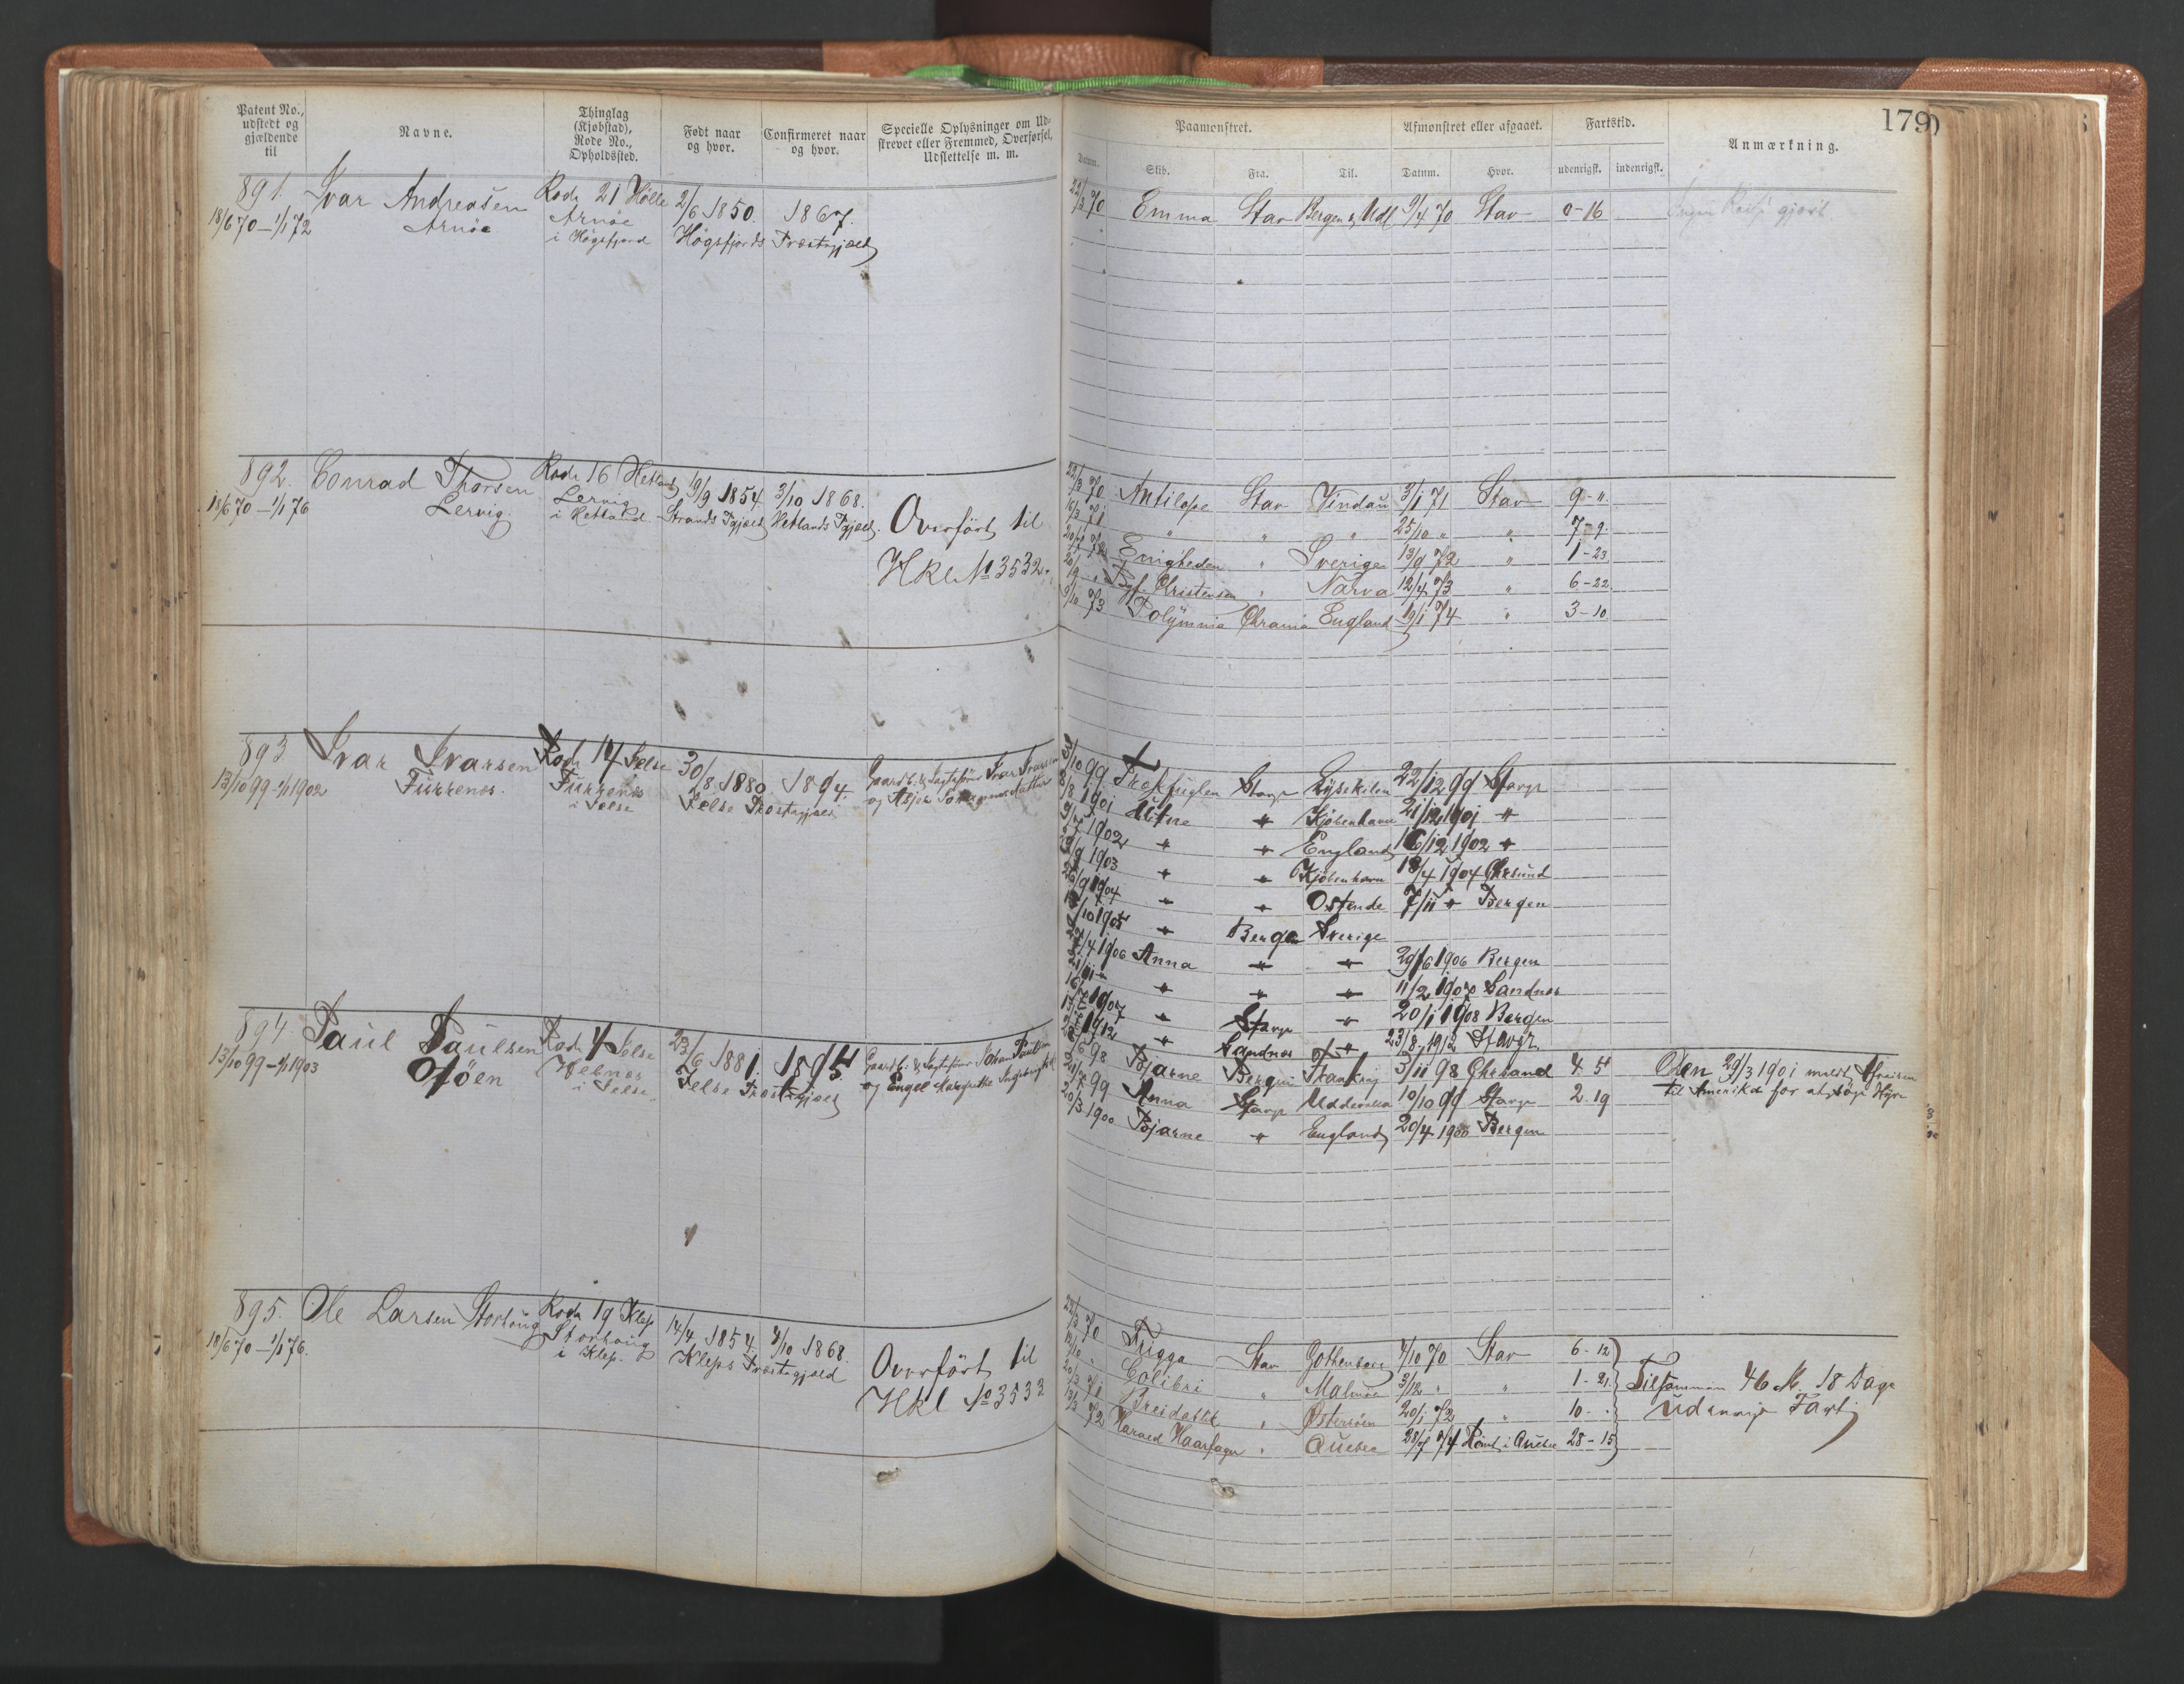 179
Patent No., udstedt og gjældende til
Navne.
Thinglag (Kjøbstad), Rode No., Opholdssted.
Født naar og hvor.
Confirmeret naar og hvor.
Specielle Oplysninger om Udskrevet eller Fremmed, Overførsel, Udslettelse m. m.
Paamønstret.
Datum. Skib. Fra. Til.
Afmønstret eller afgaaet.
Datum. Hvor.
Fartstid.
udenrigsk. indenrigsk.
Anmærkning.
891. Ivar Andreasen Rode 21 Hölle 2/6 1850. 1867.
18/6 70 – 1/1 72 Arnöe Arnöe
i Högsfjord Högsfjords Præstegjæld
22/3 70 Emma Stav Bergen & Udl 9/4 70 Stav 0-16
892. Conrad Thorsen Rode 16 Hetland 19/9 1854. 3/10 1868.
18/6 70 – 1/1 76 Lervig. Lervig
i Hetland Strands Pgjæld Hetlands Pgjæld.
Overført til
Hkl No 3532.
22/3 70 Antilope Stav Vindau 3/1 71 Stav 9-"
16/3 71 " " " 25/10 " " 7-9.
Enigheden " Sverige 13/9 72 " 1-23
Christensen " Narva 12/4 73 " 6-22
9/10 73 Polÿmnia Chrania England 19/1 74 " 3-10
893 Ivar Ivarsen Rode 14 Jelse 30/8 1880. 1894.
13/10 99 – 1/1 1902 Furrenes. Furrenes
i Jelse Jelse Præstegjæld
Gaardb. & Jagteförer Ivar Ivarsen
1/10 99 Trækfuglen Stavgr Lÿsekilen 22/12 99 Stavgr
8/8 1901 " Kjöbenhavn 21/12 1901 "
1902 " " England 16/12 1902 "
1903 " " Kjöbenhavn 18/4 1904 Chrsund
26/9 1904 " " Ostende 7/11 " Bergen
/10 1905 " Bergen Sverige
/4 1906 Anna " " 29/6 1906 Bergen
" " " 11/2 1907 Sandnes
1907 " Stavgr " 20/1 1908 Bergen
1912 " Sandnes " 23/8 1912 Stavgr.
894. Paul Paulsen Rode 4 Jelse 23/6 1881. 1895.
13/10 99 – 1/1 1903 Oföen
i Jelse. Jelse Præstegjæld
Gaardb: & Jagtefører Johan Paulsen
og Engel Margrethe
/6 98 Bjarne Bergen 3/11 98 Chrsand 4. 5
99 Anna Stavgr Uddevalla 10/10 99 Stavgr 2. 19
20/3 1900 Bjarne " England 20/4 1900 Bergen
Den 29/3 1901 meldt Afreisen
til Amerika for at søge Hyre
895. Ole Larsen Storhaug Rode 19 Klep 14/4 1854. 4/10 1868.
18/6 70 – 1/1 76. Storhaug
i Klep. Kleps Præstegjæld
Overført til
Hkl No 3533
22/3 70 Frigga Stav Gothenborg 4/10 70 Stav 6-12
Colibri " Malmøe 3/12 " " 1-21
20/3 71 Breidablik " Österriisen 20/1 72 " 10 -
13/3 72 Harald Haarfager " Quebec 28/7 74 Rømt i Quebec 28-15
Tilsammen 46 M. 18 Dage
udenrigs Fart